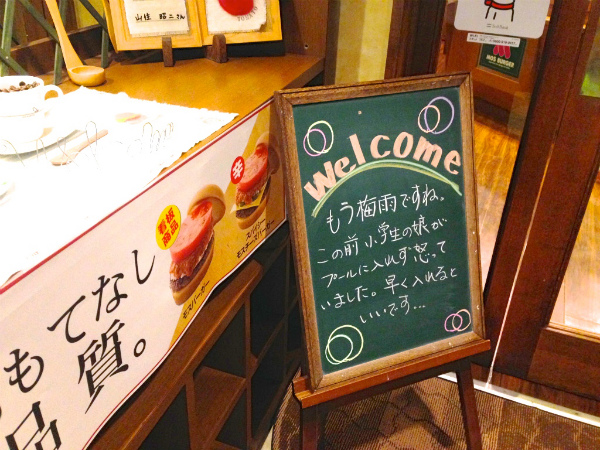 山佳 昭二さん
MOS BURGER
Welcome
もう梅雨ですね。
この前小学生の娘が
プールに入れず怒って
いました。早く入れると
いいです…
看板
商品
モスバーガー
辛
スパイシー
モスチーズバーガー
てなし
も
質。
品